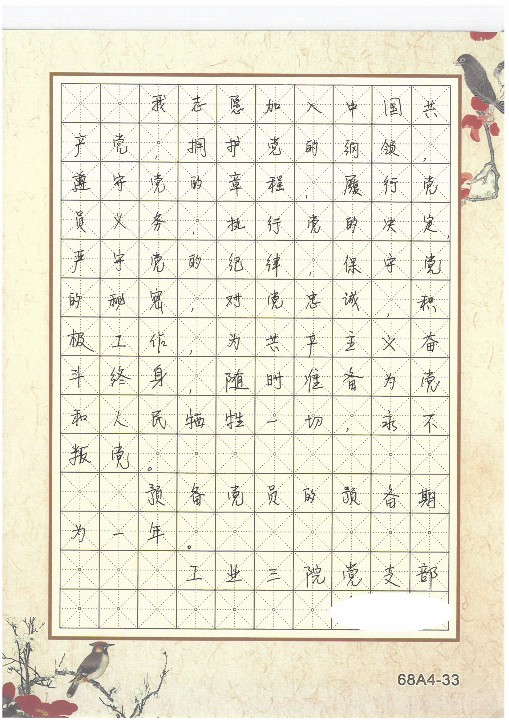 我志愿加入中国共
产党，拥护党的纲领，
遵守党的章程，履行党
员义务，执行党的决定，
严守党的纪律，保守党
的秘密，对党忠诚，积
极工作，为共产主义奋
斗终身，随时准备为党
和人民牺牲一切，永不
叛党。
预备党员的预备期
为一年。
工业三院党支部
68A4-33